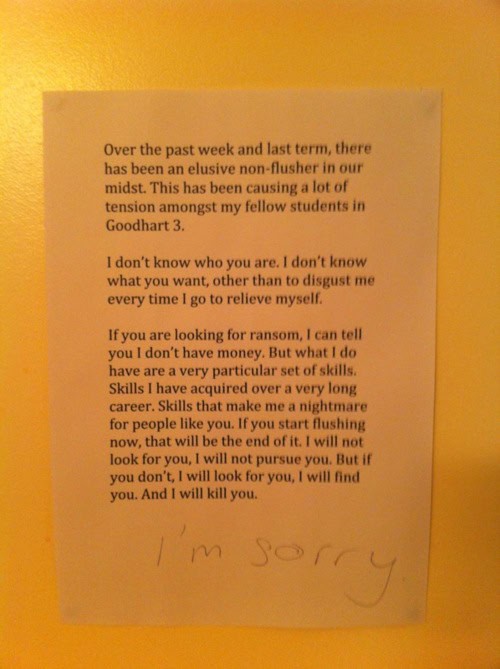 Over the past week and last term, there
has been an elusive non-flusher in our
midst. This has been causing a lot of
tension amongst my fellow students in
Goodhart 3.
I don't know who you are. I don't know
what you want, other than to disgust me
every time I go to relieve myself.
If you are looking for ransom, I can tell
you I don't have money. But what I do
have are a very particular set of skills.
Skills I have acquired over a very long
career. Skills that make me a nightmare
for people like you. If you start flushing
now, that will be the end of it. I will not
look for you, I will not pursue you. But if
you don't, I will look for you, I will find
you. And I will kill you.
I'm sorry